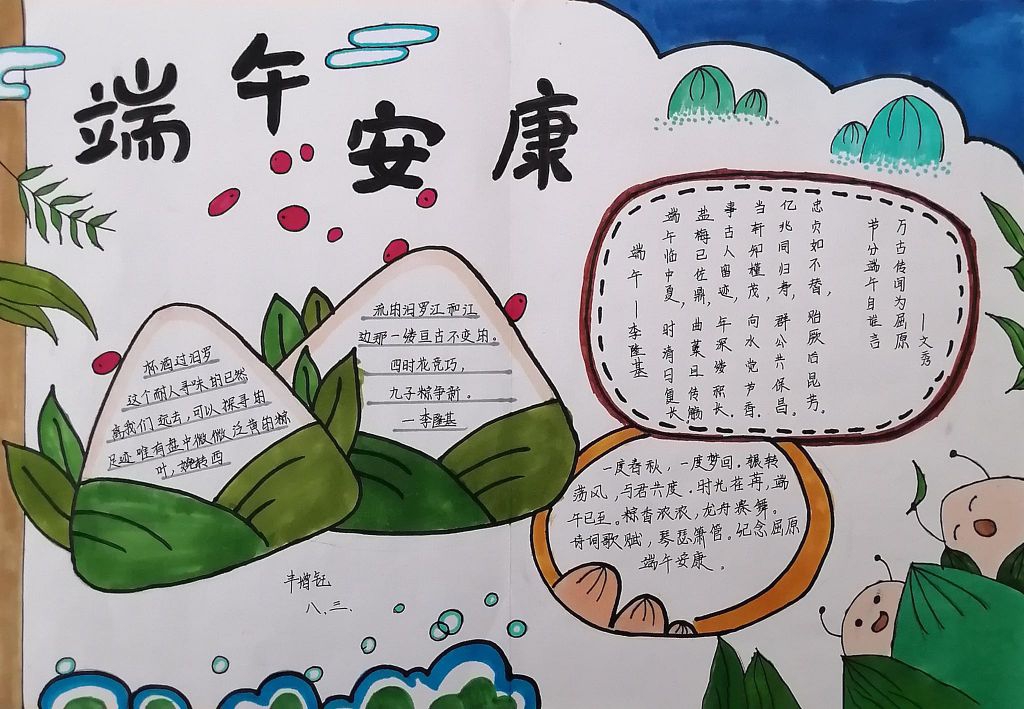 端午安康
杯酒过汨罗
这个耐人寻味的已然
离我们远去,可以探寻的
足迹唯有盘中微微泛黄的粽
叶,婉转西
流的汨罗江和江
边那一缕亘古不变的。
四时花竞巧,
九子粽争新。
—李隆基
端午—李隆基
端午临中夏,时清日复长
盐梅已佐鼎,曲糵且传觞
事古人留迹,年深缕积长.
当轩知槿茂,向水觉芦香.
亿兆同归寿,群公共保昌.
忠贞如不替,胎厥后昆芳.
节分端午自谁言
万古传闻为屈原
—文秀
一度春秋,一度梦回.辗转
荡风,与君共度.时光荏苒,端
午已至。粽香浓浓,龙舟赛舞。
诗词歌赋,琴瑟箫管。纪念屈原
端午安康。
八、三、